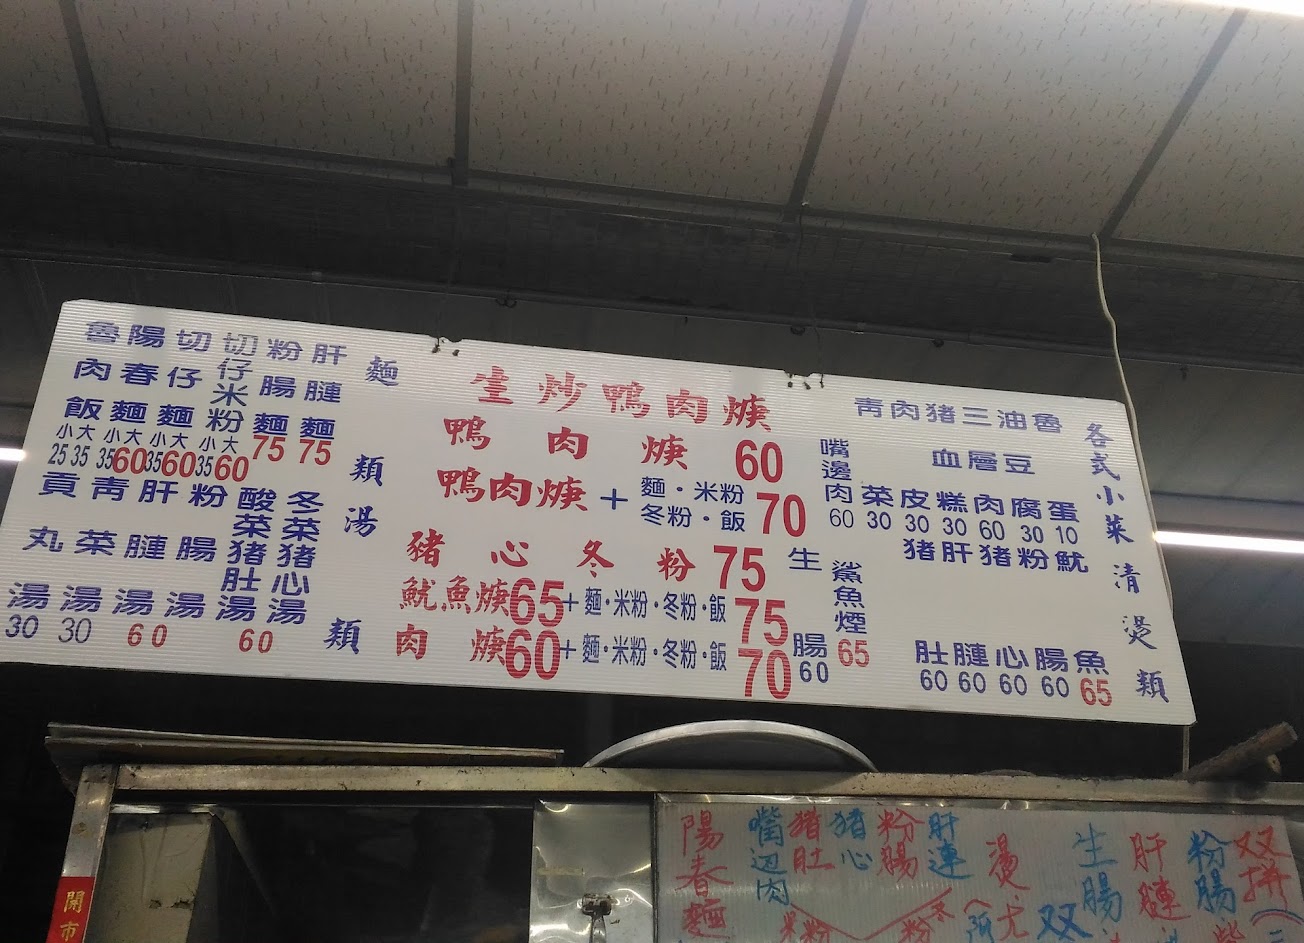 各式小菜清燙類
魯蛋 10
油豆腐 30
三層肉 60
豬血糕 30
肉皮 30
青菜 30
嘴邊肉 60
魷魚 65
粉腸 60
豬心 60
肝膻 60
豬肚 60
鯊魚煙 65
生腸 60
生炒鴨肉焿
鴨肉焿 60
鴨肉焿+麵·米粉 冬粉·飯 70
豬心冬粉 75
魷魚焿65+麵·米粉·冬粉·飯 75
肉焿60+麵·米粉·冬粉·飯 70
麵類
肝膻麵 75
粉腸麵 75
切仔米粉 小35 大60
切仔麵 小35 大60
陽春麵 小35 大60
魯肉飯 小25 大35
湯類
冬菜豬心湯
酸菜豬肚湯
60
粉腸湯
肝膻湯
60
青菜湯 30
貢丸湯 30
双拼
粉腸
肝膻
生腸
燙
肝連
粉腸
豬心
豬肚
嘴边肉
陽春麵
米粉
双
開市